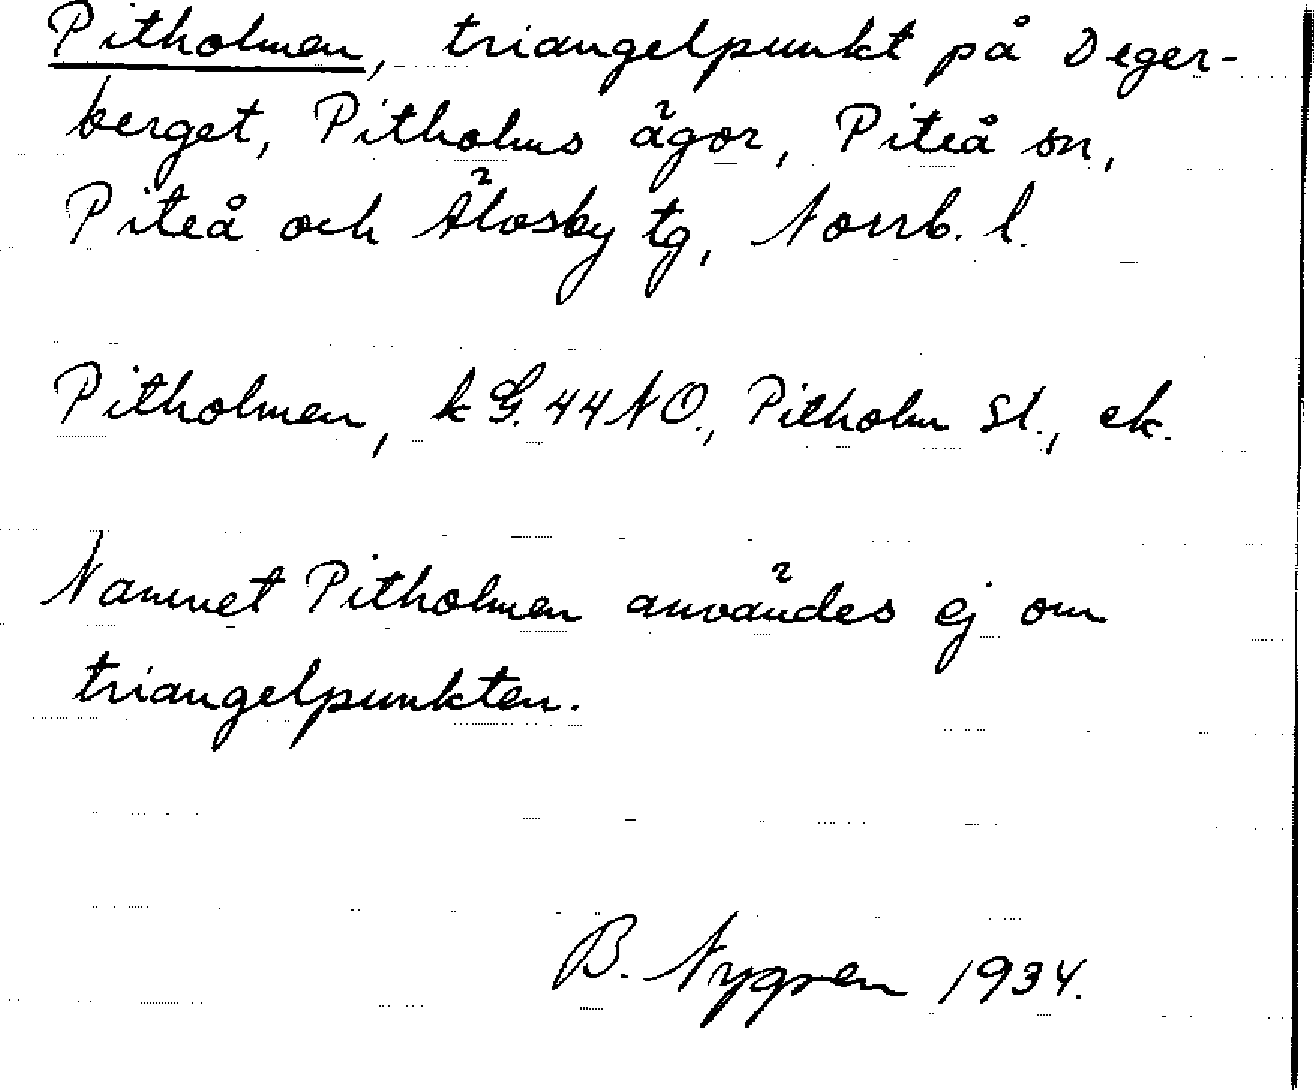 Pitholmen, triangelpunkt på Deger-
berget, Pitholms ägor, Piteå sn,
Piteå och Älvsby tg, Norrb. l.
Pitholmen, k G. 44 NO., Pitholm St., ek.
Namnet Pitholmen användes ej om
triangelpunkten.
B. Nygren 1934.